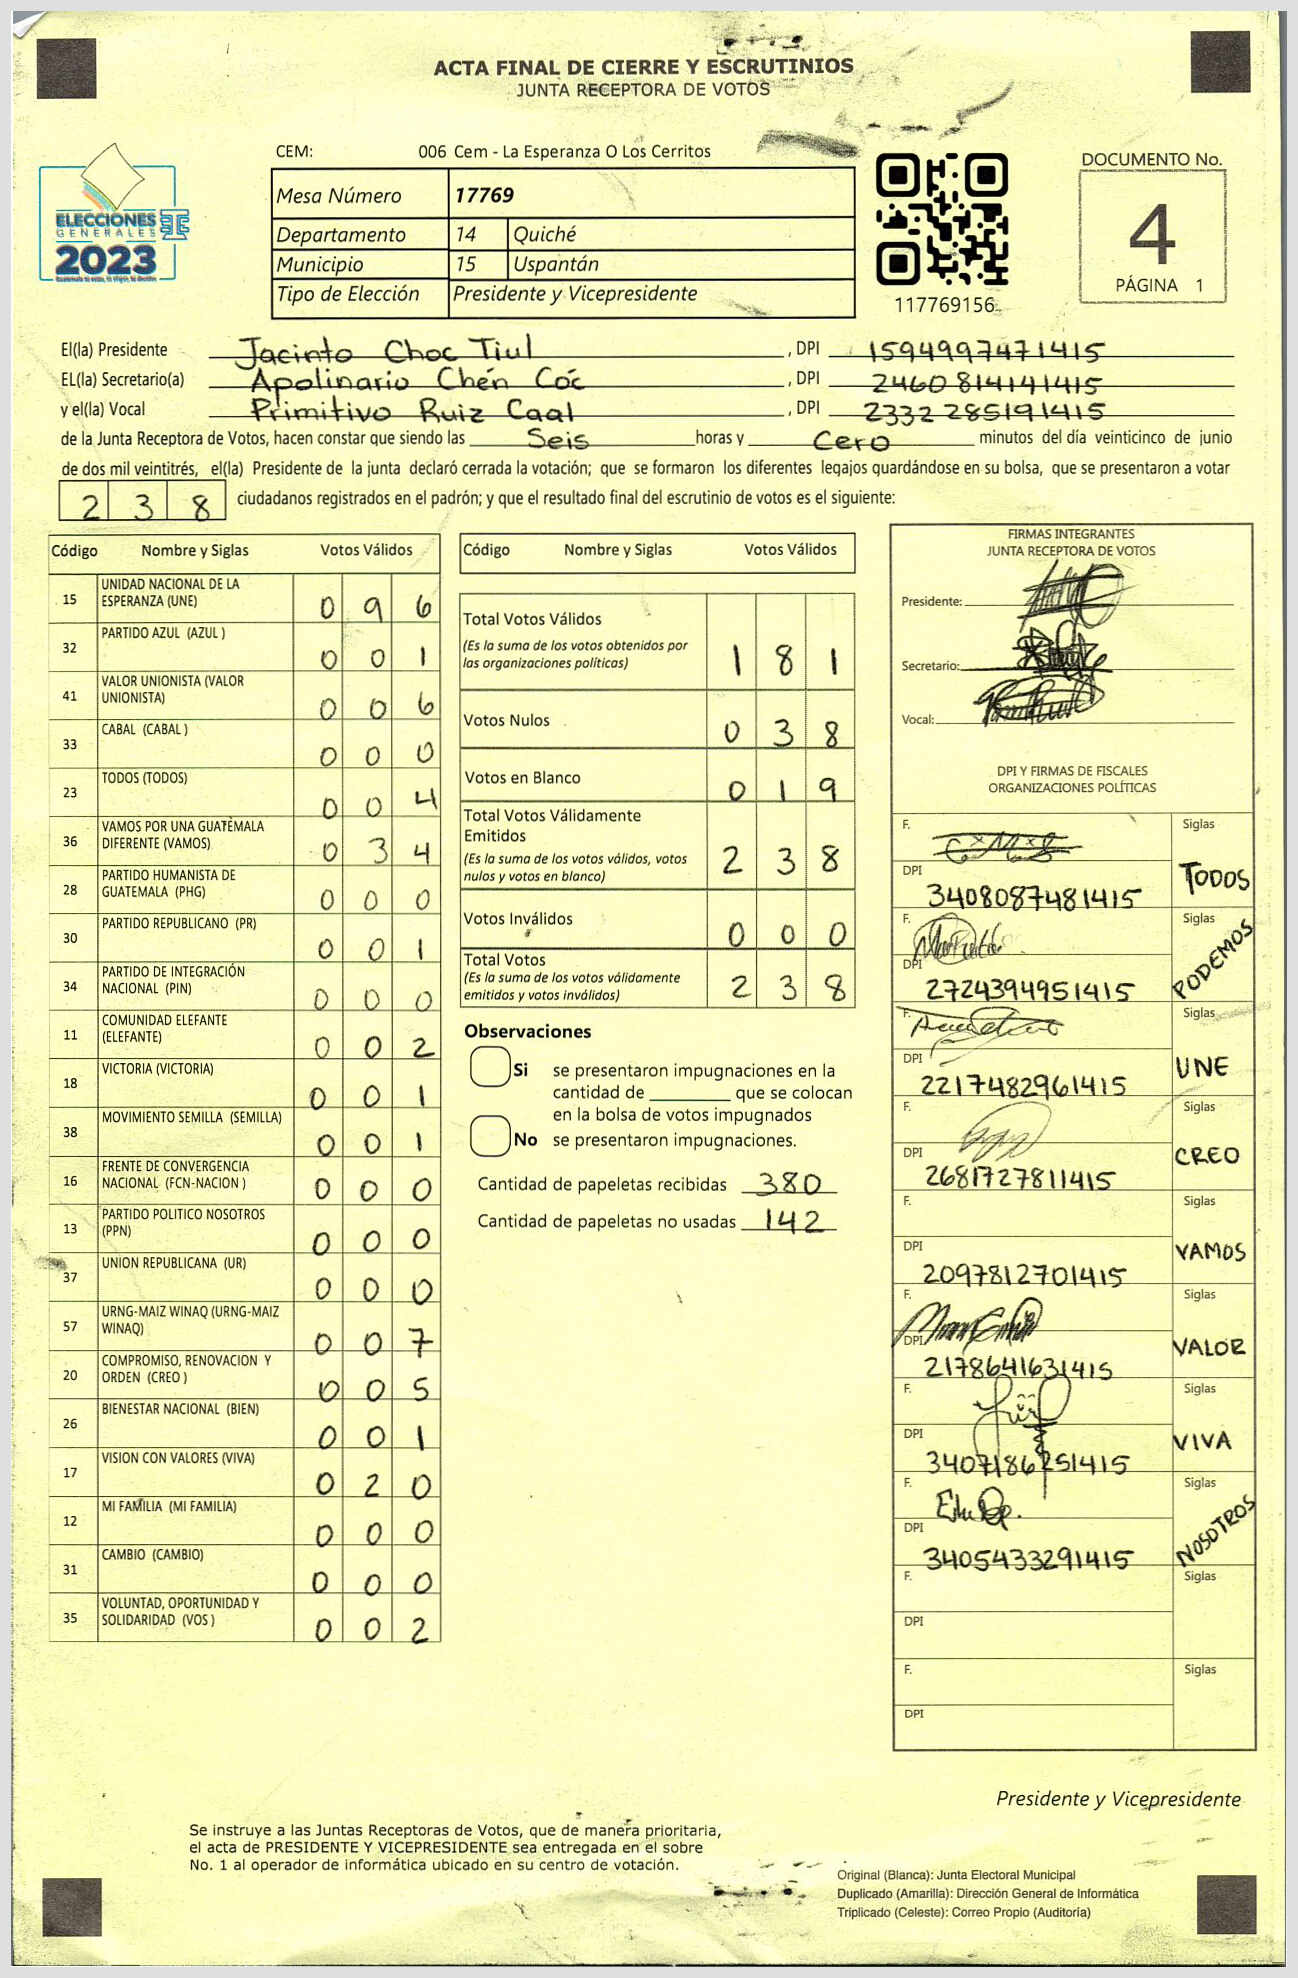 ACTA FINAL DE CIERRE Y ESCRUTINIOS
JUNTA RECEPTORA DE VOTOS
CEM: 006 Cem - La Esperanza O Los Cerritos
ELECCIONES
GENERALES
2023
Mesa Número 17769
Departamento 14 Quiché
Municipio 15 Uspantán
Tipo de Elección Presidente y Vicepresidente
117769156
DOCUMENTO No.
4
PÁGINA 1
El(la) Presidente Jacinto Choc Tiul , DPI 1594997471415
EL(la) Secretario(a) Apolinario Chén Cóc , DPI 2460814141415
y el(la) Vocal Primitivo Ruiz Caal , DPI 2332285191415
de la Junta Receptora de Votos, hacen constar que siendo las Seis horas y Cero minutos del día veinticinco de junio
de dos mil veintitrés, el(la) Presidente de la junta declaró cerrada la votación; que se formaron los diferentes legajos guardándose en su bolsa, que se presentaron a votar
2 3 8 ciudadanos registrados en el padrón; y que el resultado final del escrutinio de votos es el siguiente:
Código Nombre y Siglas Votos Válidos
15 UNIDAD NACIONAL DE LA
ESPERANZA (UNE) 0 9 6
32 PARTIDO AZUL (AZUL ) 0 0 1
41 VALOR UNIONISTA (VALOR
UNIONISTA) 0 0 6
33 CABAL (CABAL ) 0 0 0
23 TODOS (TODOS) 0 0 4
36 VAMOS POR UNA GUATEMALA
DIFERENTE (VAMOS) 0 3 4
28 PARTIDO HUMANISTA DE
GUATEMALA (PHG) 0 0 0
30 PARTIDO REPUBLICANO (PR) 0 0 1
34 PARTIDO DE INTEGRACIÓN
NACIONAL (PIN) 0 0 0
11 COMUNIDAD ELEFANTE
(ELEFANTE) 0 0 2
18 VICTORIA (VICTORIA) 0 0 1
38 MOVIMIENTO SEMILLA (SEMILLA) 0 0 1
16 FRENTE DE CONVERGENCIA
NACIONAL (FCN-NACION ) 0 0 0
13 PARTIDO POLITICO NOSOTROS
(PPN) 0 0 0
37 UNION REPUBLICANA (UR) 0 0 0
57 URNG-MAIZ WINAQ (URNG-MAIZ
WINAQ) 0 0 7
20 COMPROMISO, RENOVACION Y
ORDEN (CREO ) 0 0 5
26 BIENESTAR NACIONAL (BIEN) 0 0 1
17 VISION CON VALORES (VIVA) 0 2 0
12 MI FAMILIA (MI FAMILIA) 0 0 0
31 CAMBIO (CAMBIO) 0 0 0
35 VOLUNTAD, OPORTUNIDAD Y
SOLIDARIDAD (VOS ) 0 0 2
Código Nombre y Siglas Votos Válidos
Total Votos Válidos
(Es la suma de los votos obtenidos por
las organizaciones políticas) 1 8 1
Votos Nulos 0 3 8
Votos en Blanco 0 1 9
Total Votos Válidamente
Emitidos
(Es la suma de los votos válidos, votos
nulos y votos en blanco) 2 3 8
Votos Inválidos 0 0 0
Total Votos
(Es la suma de los votos válidamente
emitidos y votos inválidos) 2 3 8
Observaciones
Si se presentaron impugnaciones en la
cantidad de ________ que se colocan
en la bolsa de votos impugnados
No se presentaron impugnaciones.
Cantidad de papeletas recibidas 380
Cantidad de papeletas no usadas 142
FIRMAS INTEGRANTES
JUNTA RECEPTORA DE VOTOS
Presidente:
Secretario:
Vocal:
DPI Y FIRMAS DE FISCALES
ORGANIZACIONES POLÍTICAS
F. Siglas
DPI 3408087481415 TODOS
F. Siglas
DPI 2724394951415 PODEMOS
F. Siglas
DPI 2217482961415 UNE
F. Siglas
DPI 2681727811415 CREO
F. Siglas
DPI 2097812701415 VAMOS
F. Siglas
DPI 2178641631415 VALOR
F. Siglas
DPI 3407186251415 VIVA
F. Siglas
DPI 3405433291415 NOSOTROS
F. Siglas
DPI
F. Siglas
DPI
Presidente y Vicepresidente
Se instruye a las Juntas Receptoras de Votos, que de manera prioritaria,
el acta de PRESIDENTE Y VICEPRESIDENTE sea entregada en el sobre
No. 1 al operador de informática ubicado en su centro de votación.
Original (Blanca): Junta Electoral Municipal
Duplicado (Amarilla): Dirección General de Informática
Triplicado (Celeste): Correo Propio (Auditoría)